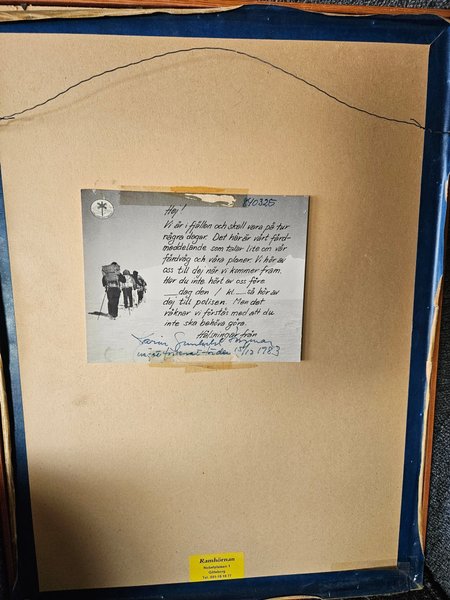 840325
Hej!
Vi är i fjällen och skall vara på tur
några dagar. Det här är vårt färd-
meddelande som talar lite om vår
färdväg och våra planer. Vi hör av
oss till dej när vi kommer fram.
Har du inte hört av oss före
__dag den / kl __ så hör av
dej till polisen. Men det
räknar vi förstås med att du
inte ska behöva göra.
Hälsningar från
13/12 1983
Ramhörnan
Göteborg